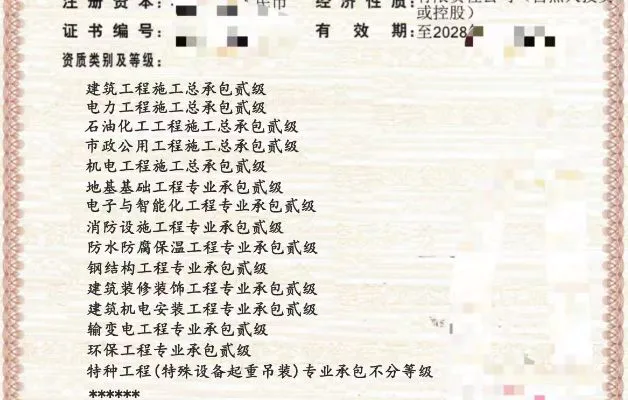 注册资本: 民币
经济性质: 有限责任公司(自然人投资
或控股)
证书编号:
有效期:至2028
资质类别及等级:
建筑工程施工总承包贰级
电力工程施工总承包贰级
石油化工工程施工总承包贰级
市政公用工程施工总承包贰级
机电工程施工总承包贰级
地基基础工程专业承包贰级
电子与智能化工程专业承包贰级
消防设施工程专业承包贰级
防水防腐保温工程专业承包贰级
钢结构工程专业承包贰级
建筑装修装饰工程专业承包贰级
建筑机电安装工程专业承包贰级
输变电工程专业承包贰级
环保工程专业承包贰级
特种工程(特殊设备起重吊装)专业承包不分等级
******